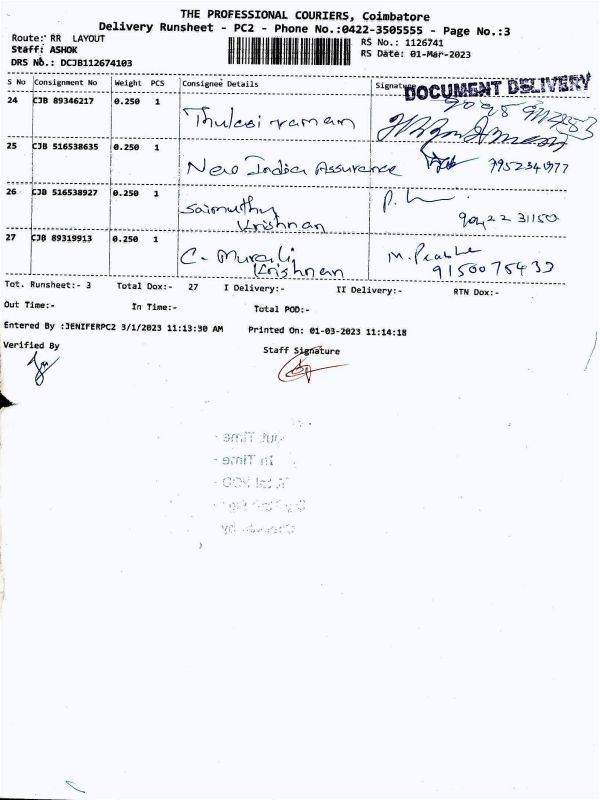 THE PROFESSIONAL COURIERS, Coimbatore
Delivery Runsheet - PC2 - Phone No.:0422-3505555 - Page No.:3
Route: RR LAYOUT
RS No.: 1126741
Staff: ASHOK
RS Date: 01-Mar-2023
DRS No.: DCJB112674103
S No Consignment No Weight PCS Consignee Details Signature
DOCUMENT DELIVERY
24 CJB 89346217 0.250 1 Thulasi raman
25 CJB 516538635 0.250 1 New India Assurance
26 CJB 516538927 0.250 1 Saimuthu Krishnan
27 CJB 89319913 0.250 1 C. Murali Krishnan M. Prabhu
Tot. Runsheet:- 3 Total Dox:- 27 I Delivery:- II Delivery:- RTN Dox:-
Out Time:- In Time:- Total POD:-
Entered By :JENIFERPC2 3/1/2023 11:13:30 AM Printed On: 01-03-2023 11:14:18
Verified By Staff Signature